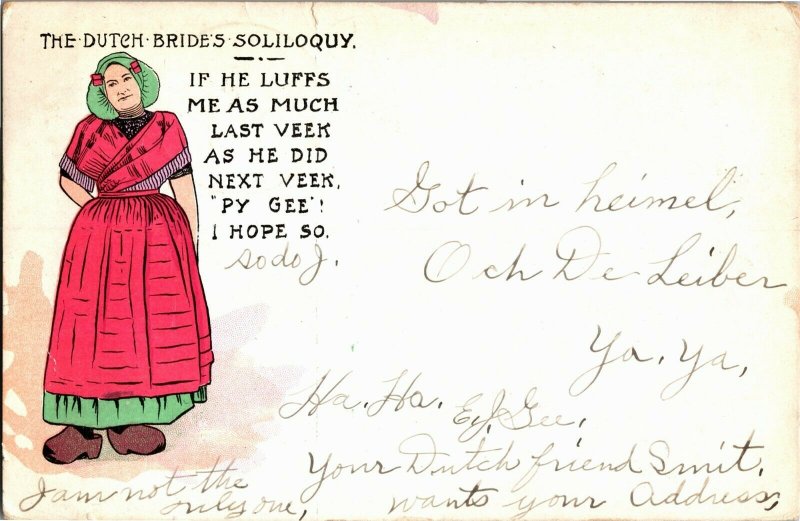 THE·DUTCH·BRIDE'S·SOLILOQUY.
IF HE LUFFS
ME AS MUCH
LAST VEEK
AS HE DID
NEXT VEEK,
"PY GEE"!
I HOPE SO.
so do I.
Got in heimel,
Och De Leiber
Ya, Ya,
Ha. Ha. Gee,
Your Dutch friend Smit,
wants your Address,
I am not the
only one,